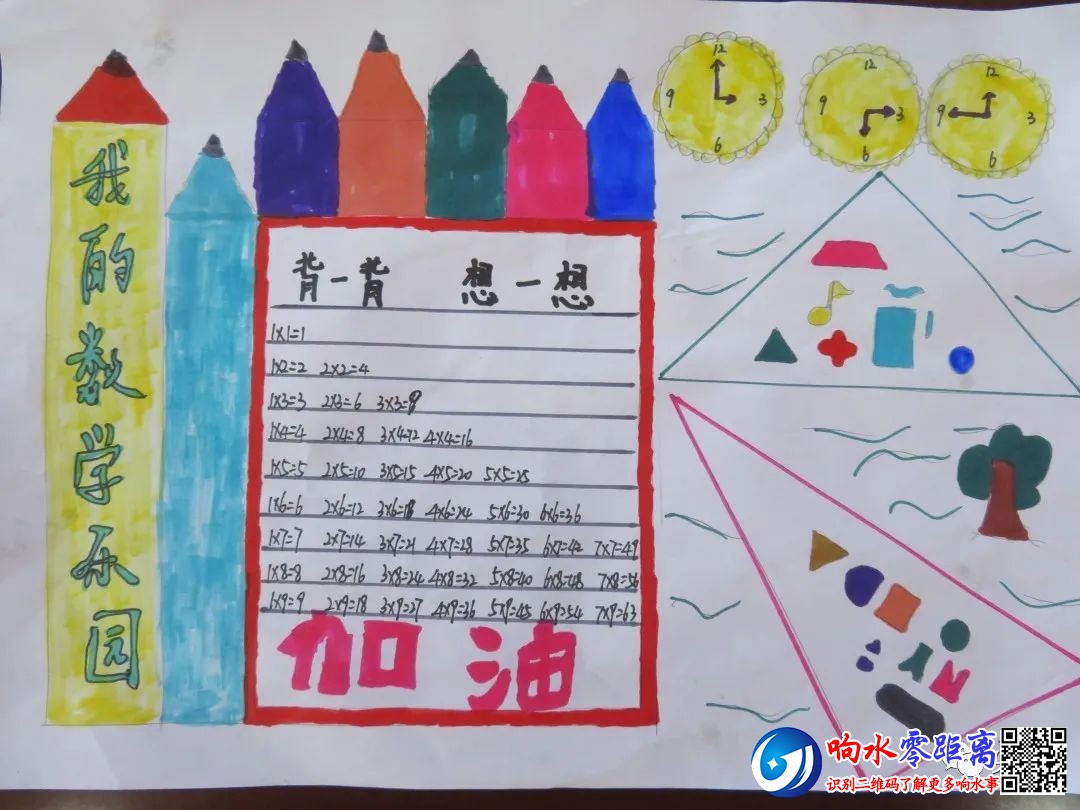 我的数学乐园
12
9 3
6
12
9 3
6
12
9 3
6
背一背 想一想
1×1=1
1×2=2 2×2=4
1×3=3 2×3=6 3×3=9
1×4=4 2×4=8 3×4=12 4×4=16
1×5=5 2×5=10 3×5=15 4×5=20 5×5=25
1×6=6 2×6=12 3×6=18 4×6=24 5×6=30 6×6=36
1×7=7 2×7=14 3×7=21 4×7=28 5×7=35 6×7=42 7×7=49
1×8=8 2×8=16 3×8=24 4×8=32 5×8=40 6×8=48 7×8=56
1×9=9 2×9=18 3×9=27 4×9=36 5×9=45 6×9=54 7×9=63
加油
响水零距离
识别二维码了解更多响水事